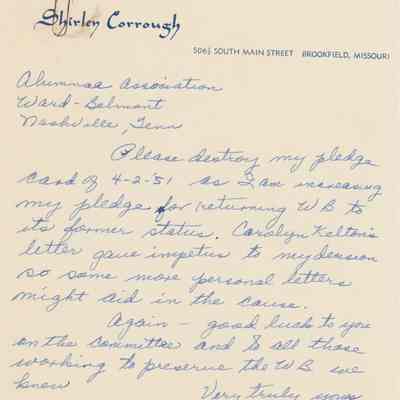 Shirley Corrough
506½ SOUTH MAIN STREET BROOKFIELD, MISSOURI
Alumnae Association
Ward-Belmont
Nashville, Tenn
Please destroy my pledge
card of 4-2-'51 as I am increasing
my pledge for returning W B to
its former status. Carolyn Kelton's
letter gave impetus to my decision
so some more personal letters
might aid in the cause.
Again - good luck to you
on the committee and to all those
working to preserve the W B we
knew
Very truly yours